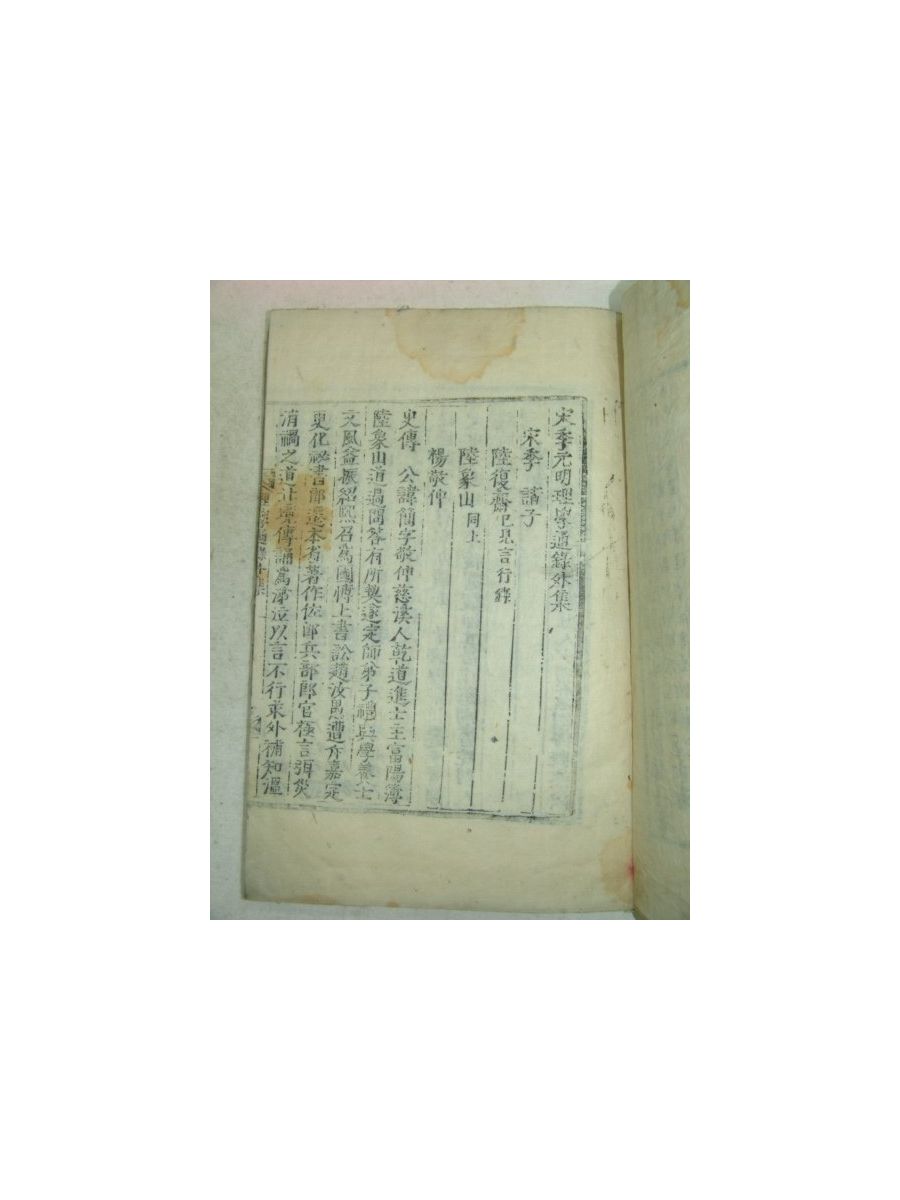 宋季元明理學通錄外集
宋季 諸子
陸復齋 已見言行錄
陸象山 同上
楊敬仲
史傳 公諱簡字敬仲慈溪人乾道進士主富陽簿
陸象山道過問答有所契遂定師弟子禮興學養士
文風益振紹熙召爲國博上書訟趙汝愚遭斥嘉定
更化秘書郞遷本省著作佐郞兵部郞官極言弭災
消禍之道 傳誦爲 以言不行求外補知溫